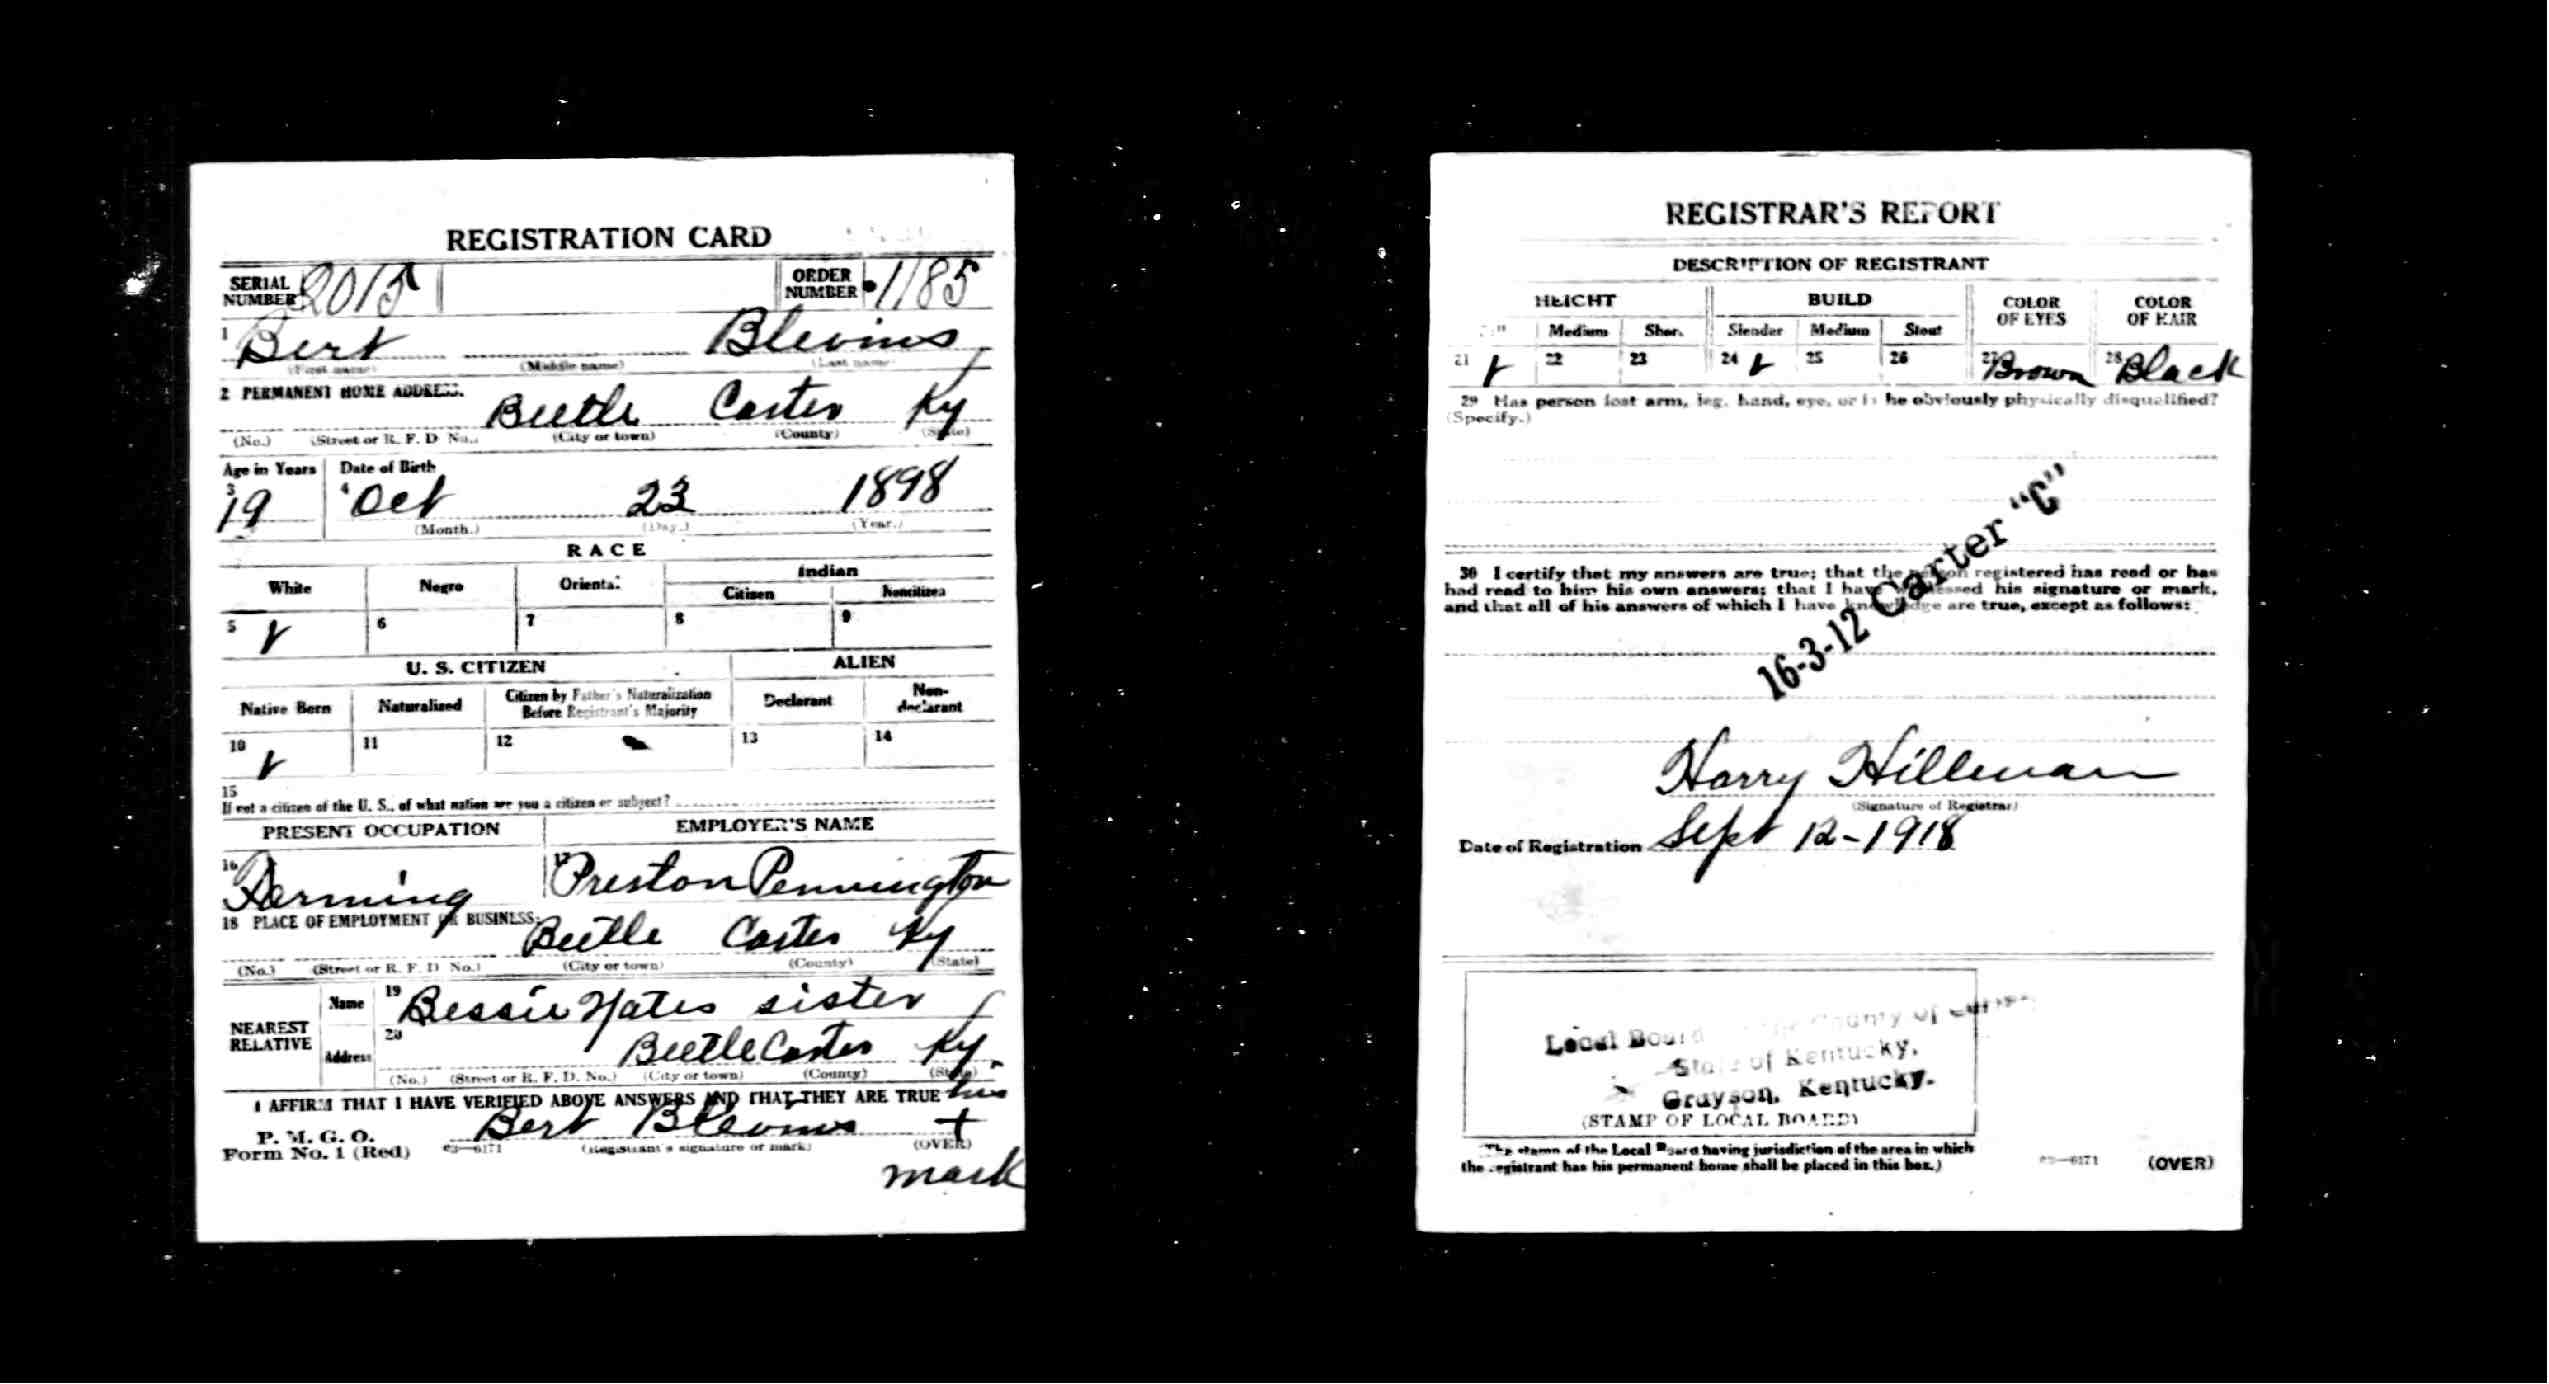 REGISTRATION CARD
SERIAL NUMBER 2015 ORDER NUMBER 1185
1 Bert Blevins
(First name) (Middle name) (Last name)
2 PERMANENT HOME ADDRESS.
Beetle Carter Ky
(No.) (Street or R. F. D No.) (City or town) (County) (State)
Age in Years Date of Birth
3 19 4 Oct 23 1898
(Month.) (Day.) (Year.)
RACE
White Negro Oriental Indian
Citizen Noncitizen
5 6 7 8 9
U. S. CITIZEN ALIEN
Native Born Naturalized Citizen by Father's Naturalization Before Registrant's Majority Declarant Non-declarant
10 11 12 13 14
15
If not a citizen of the U. S., of what nation are you a citizen or subject?
PRESENT OCCUPATION EMPLOYER'S NAME
16 Farming 17 Preston Pennington
18 PLACE OF EMPLOYMENT OR BUSINESS:
Beetle Carter Ky
(No.) (Street or R. F. D No.) (City or town) (County) (State)
NEAREST RELATIVE
Name 19 Bessie Yates sister
Address 20 Beetle Carter Ky
(No.) (Street or R. F. D. No.) (City or town) (County) (State)
I AFFIRM THAT I HAVE VERIFIED ABOVE ANSWERS AND THAT THEY ARE TRUE his
Bert Blevins +
P. M. G. O.
Form No. 1 (Red) 03—6171 (Registrant's signature or mark) (OVER)
mark
REGISTRAR'S REPORT
DESCRIPTION OF REGISTRANT
HEIGHT BUILD COLOR OF EYES COLOR OF HAIR
Medium Short Slender Medium Stout
21 22 23 24 25 26 27 Brown 28 Black
29 Has person lost arm, leg, hand, eye, or is he obviously physically disqualified?
(Specify.)
16-3-12 Carter "C"
30 I certify that my answers are true; that the person registered has read or has
had read to him his own answers; that I have witnessed his signature or mark,
and that all of his answers of which I have knowledge are true, except as follows:
Harry Hillman
(Signature of Registrar)
Date of Registration Sept 12-1918
Local Board the County of Carter
State of Kentucky,
Grayson, Kentucky.
(STAMP OF LOCAL BOARD)
The stamp of the Local Board having jurisdiction of the area in which
the registrant has his permanent home shall be placed in this box.)
03—6171 (OVER)